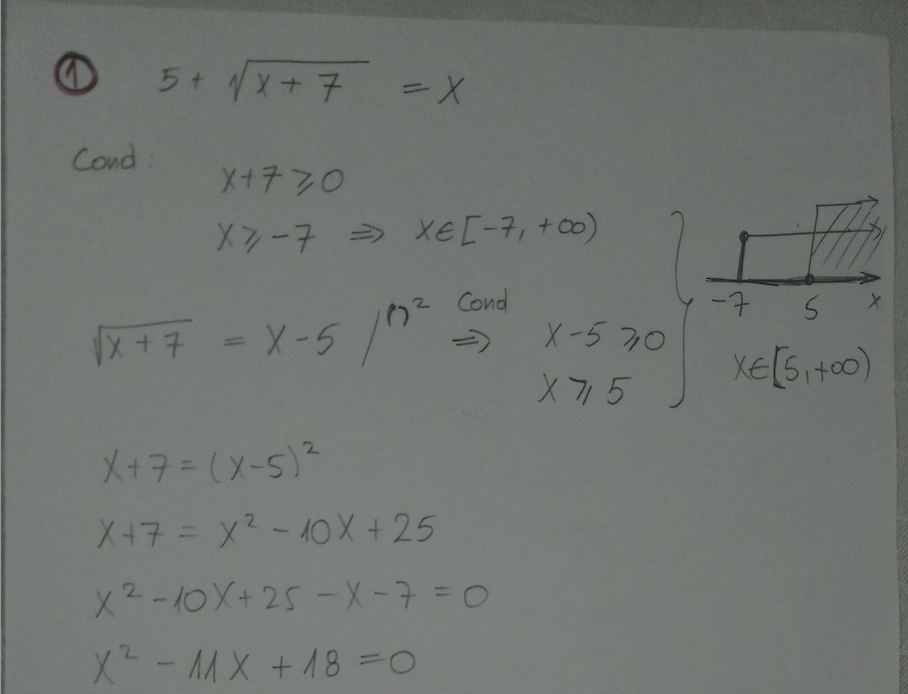 ① 5 + √(x + 7) = x
Cond:
x+7 ⩾ 0
x ⩾ -7 ⇒ x∈[-7, +∞)
√(x + 7) = x - 5 /()² Cond ⇒ x-5 ⩾ 0
x ⩾ 5
-7 5 x
x∈[5,+∞)
x+7 = (x-5)²
x+7 = x² - 10x + 25
x² - 10x + 25 - x - 7 = 0
x² - 11x + 18 = 0